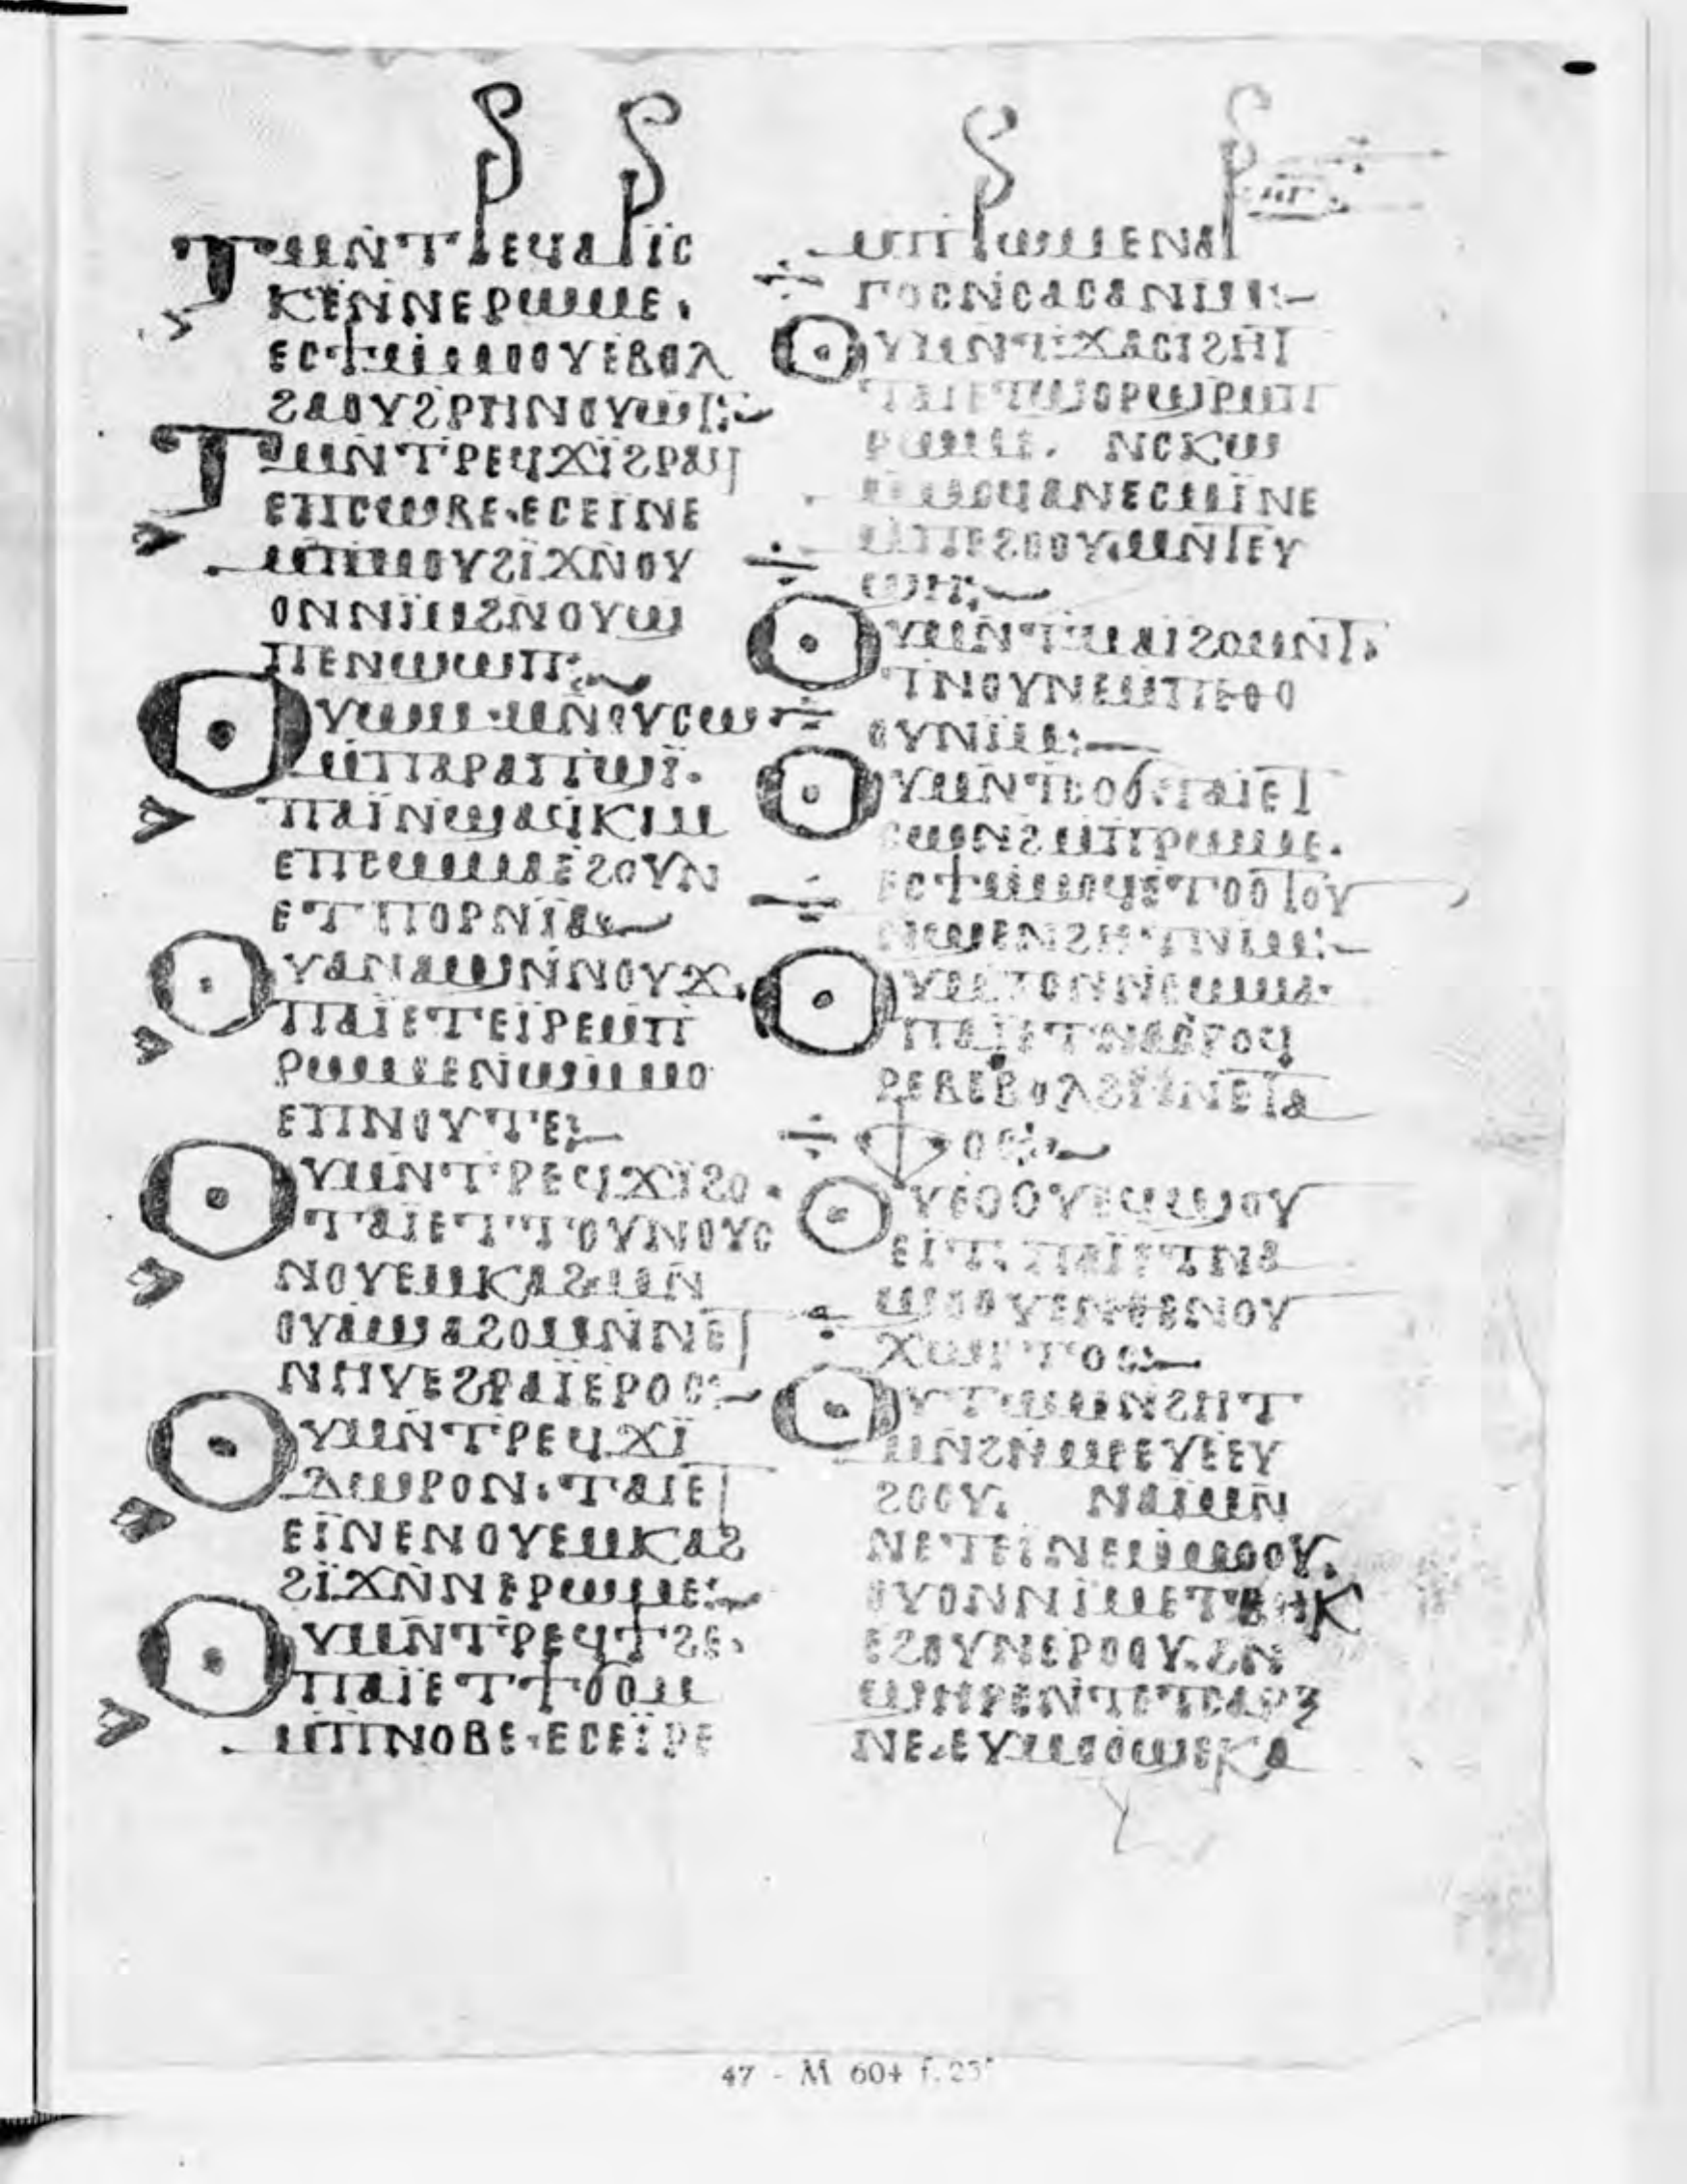 ⲧⲙⲛ̄ⲧⲣⲉϥⲁⲣⲓ̈ⲥ
ⲕⲉⲛ̄ⲛⲉⲣⲱⲙⲉ·
ⲉⲥϯⲙ̄ⲙⲟⲟⲩⲉⲃⲟⲗ
ϩⲁⲟⲩϩⲣⲏⲛⲟⲩⲱⲧ:~
ⲧⲙⲛ̄ⲧⲣⲉϥϫⲓ̈ϩⲣⲁϥ
ⲉⲡⲥⲱⲃⲉ·ⲉⲥⲉⲓⲛⲉ
ⲙ̄ⲡⲙⲟⲩϩⲓ̈ϫⲛ̄ⲟⲩ
ⲟⲛⲛⲓ̈ⲙϩⲛ̄ⲟⲩϣ
ⲡⲉⲛϣⲱⲡ:~
ⲟⲩⲱⲙ·ⲙⲛ̄ⲟⲩⲥⲱ
ⲙ̄ⲡⲁⲣⲁⲡϣⲓ̈·
ⲡⲁⲓ̈ⲛϣⲁϥⲕⲓⲙ
ⲉⲡⲥⲱⲙⲁⲉϩⲟⲩⲛ
ⲉⲧⲡⲟⲣⲛⲓⲁ:~
ⲟⲩⲁⲛⲁϣⲛ̄ⲛⲟⲩϫ·
ⲡⲁⲓ̈ⲉⲧⲉⲓ̈ⲣⲉⲙ̄ⲡ
ⲣⲱⲙⲉⲛϣⲙ̄ⲙⲟ
ⲉⲡⲛⲟⲩⲧⲉ:~
ⲟⲩⲙⲛ̄ⲧⲣⲉϥϫⲓ̈ϩⲟ·
ⲧⲁⲓ̈ⲉⲧⲧⲟⲩⲛⲟⲩⲥ
ⲛⲟⲩⲉⲙⲕⲁϩ·ⲙⲛ̄
ⲟⲩⲁϣⲁϩⲟⲙⲛ̄ⲛⲉⲧ
ⲛⲏⲩⲉϩⲣⲁⲓ̈ⲉⲣⲟⲥ:~
ⲟⲩⲙⲛ̄ⲧⲣⲉϥϫⲓ̈
ⲇⲱⲣⲟⲛ·ⲧⲁⲓⲉⲧ
ⲉⲓ̈ⲛⲉⲛⲟⲩⲉⲙⲕⲁϩ
ϩⲓ̈ϫⲛ̄ⲛⲉⲣⲱⲙⲉ:~
ⲟⲩⲙⲛ̄ⲧⲣⲉϥϯϩⲉ·
ⲡⲁⲓ̈ⲉⲧϯϭⲟⲙ
ⲙ̄ⲡⲛⲟⲃⲉ·ⲉⲥⲉⲓ̈ⲣⲉ
ⲙⲡⲣⲱⲙⲉⲛⲁⲣ
ⲅⲟⲥⲛ̄ⲥⲁⲥⲁⲛⲓⲙ:~
ⲟⲩⲙⲛ̄ⲧϫⲁⲥⲓϩⲏⲧ
ⲧⲁⲓⲉⲧϣⲟⲣϣⲣⲙ̄ⲡ
ⲣⲱⲙⲉ· ⲛⲥⲕⲱ
ⲙ̄ⲙⲟϥⲁⲛⲉⲥⲙⲓ̈ⲛⲉ
ⲙ̄ⲡⲉϩⲟⲟⲩ·ⲙⲛ̄ⲧⲉⲩ
ϣⲏ:~
ⲟⲩⲙⲛ̄ⲧⲙⲁⲓϩⲟⲙⲛ̄ⲧ·
ⲧⲛⲟⲩⲛⲉⲙ̄ⲡⲉⲑⲟ
ⲟⲩⲛⲓ̈ⲙ:~
ⲟⲩⲙⲛ̄ⲧⲥⲟϭ·ⲧⲁⲓⲉⲧ
ⲥⲱⲛϩⲙ̄ⲡⲣⲱⲙⲉ·
ⲉⲥϯⲙ̄ⲙⲟϥⲉⲧⲟⲟⲧⲟⲩ
ⲛϣⲉⲛϩⲏⲧⲛⲓⲙ:~
ⲟⲩⲙⲧⲟⲛⲛ̄ⲥⲱⲙⲁ·
ⲡⲁⲓ̈ⲉⲧⲛⲁⲁⲣⲟϥ
ⲣⲉⲃⲉⲃⲟⲗϩⲙ̄ⲛⲉⲧⲁ
ⲫⲟⲥ:~
ⲟⲩⲉⲟⲟⲩⲉϥϣⲟⲩ
ⲉⲓⲧ·ⲡⲁⲓ̈ⲉⲧⲛⲁ
ϣⲟⲟⲩⲉⲛⲑⲉⲛⲟⲩ
ⲭⲱⲣⲧⲟⲥ:~
ⲟⲩⲧⲱⲙⲛϩⲏⲧ
ⲙⲛ̄ϩⲛ̄ⲙⲉⲉⲩⲉⲉⲩ
ϩⲟⲟⲩ· ⲛⲁⲓ̈ⲙⲛ̄
ⲛⲉⲧⲉⲓⲛⲉⲙ̄ⲙⲟⲟⲩ·
ⲟⲩⲟⲛⲛⲓⲙⲉⲧⲃⲏⲕ
ⲉϩⲟⲩⲛⲉⲣⲟⲟⲩ·ϩⲛ̄
ϣⲏⲣⲉⲛ̄ⲧⲉⲧⲥⲁⲣⲝ
ⲛⲉ·ⲉⲩⲙⲟⲟϣⲉⲕⲁ
47 - M 604 f. 25ʳ